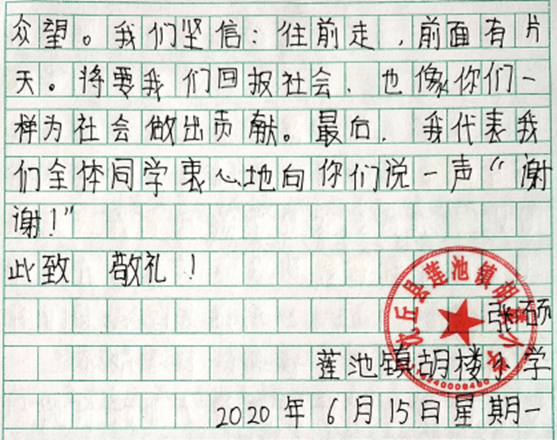 众望。我们坚信：往前走，前面有片
天。将要我们回报社会，也像你们一
样为社会做出贡献。最后，我代表我
们全体同学衷心地向你们说一声“谢
谢！”
此致 敬礼！
张硕
莲池镇胡楼小学
2020年6月15日星期一
沈丘县莲池镇胡楼小学